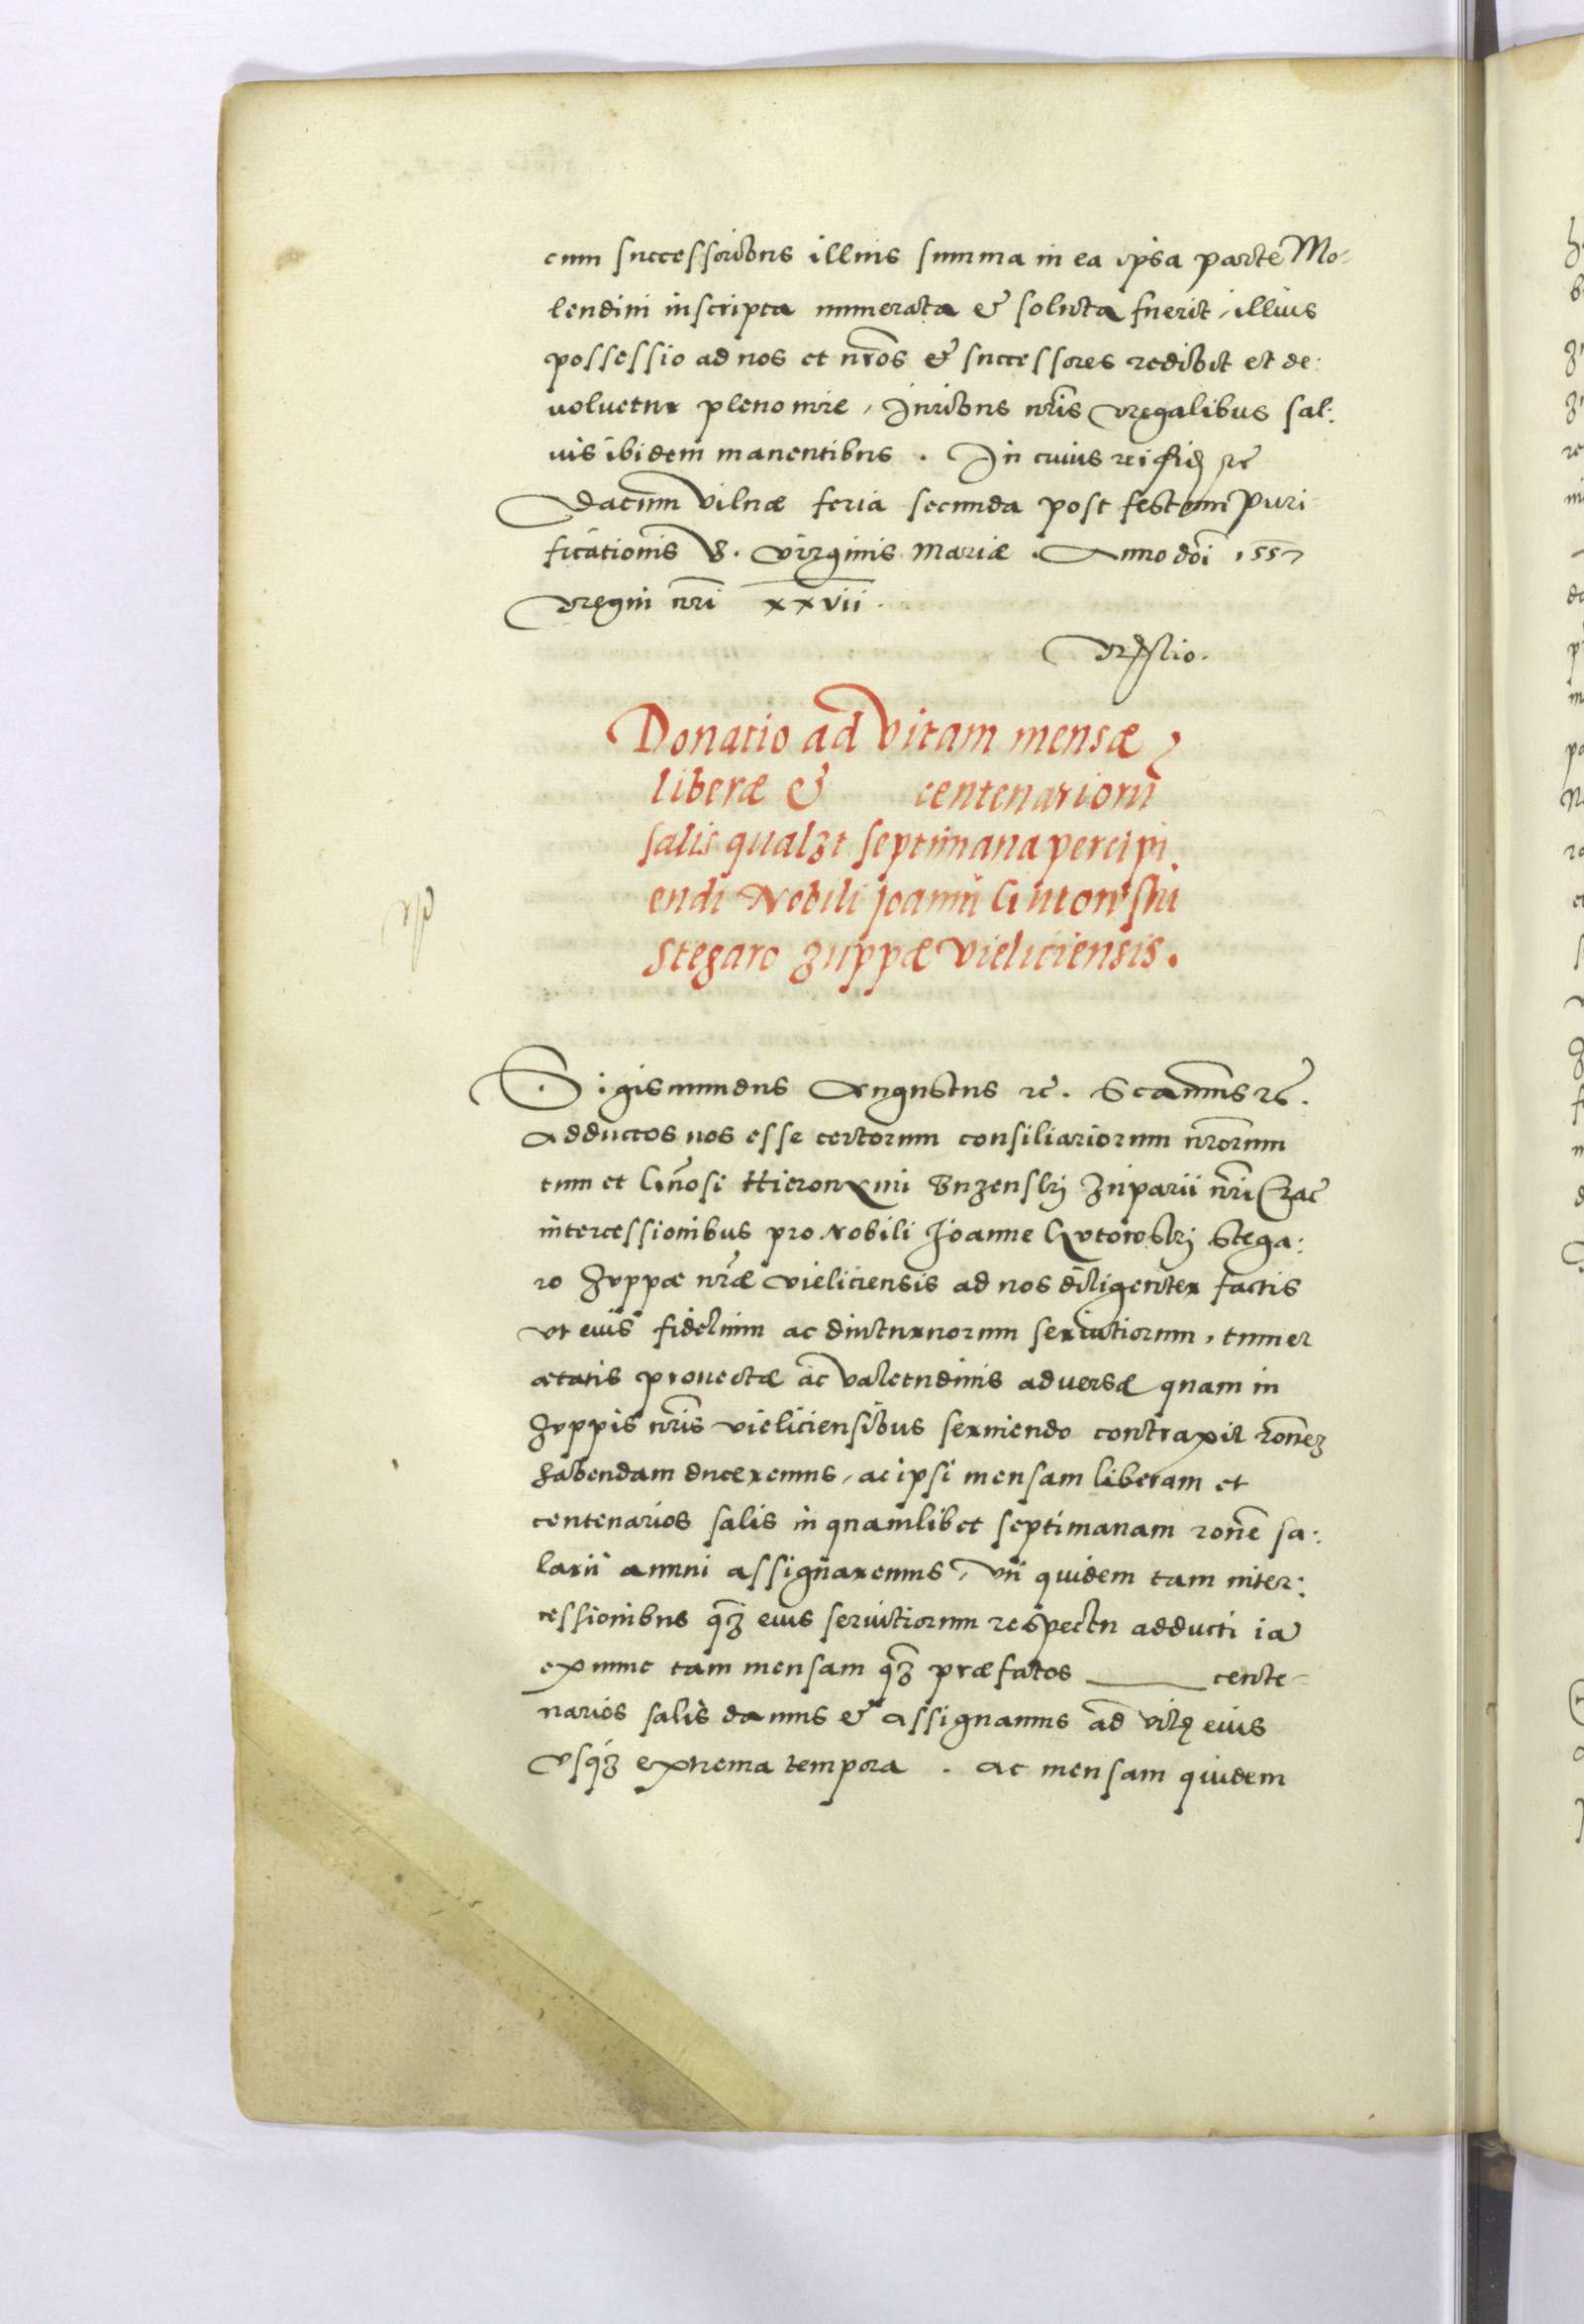 cum successoribus illius summa in ea ipsa parte Mo-
lendini inscripta numerata & soluta fuerit, illius
possessio ad nos et nr̃os & successores redibit et de:
voluetur pleno iure, Iuribus nr̃is regalibus sal:
uis ibidem manentibus. In cuius rei fid. &c̃
Datum Vilnæ feria secunda post festum Puri
ficationis B. Virginis Mariæ. Anno doi 1557
Regni nr̃i xxvii.
Donatio ad Vitam mensæ
liberæ & centenarioru
salis qualzt septimana percipi
endi Nobili Joanni Gutowski
Stegaro zuppæ Vieliciensis.
Sigismundus Augustus &c̃. Significamus &c̃.
Adductos nos esse certorum consiliariorum nr̃orum
tum et Gñosi Hieronymi Buzenski Zuparii nr̃i Crac̃
intercessionibus pro Nobili Joanne Gutowski Stega:
ro Zuppæ nr̃æ Vieliciensis ad nos diligenter factis
Vt eius fidelium ac diuturnorum seruitiorum, tum et
ætatis prouectæ ac Valetudinis adversæ quam in
Zuppis nr̃is Vieliciensibus seruiendo contraxit rõnez
habendam duceremus, ac ipsi mensam liberam et
centenarios salis in quamlibet septimanam rone sa:
larii annui assignaremus, Vn̄ quidem tam inter:
cessionibus q̃z eius seruitiorum respectu adducti ia
ex nunc tam mensam q̃z præfatos ____ cente-
narios salis damus & assignamus ad vitę eius
Vsq́z extrema tempora. Ac mensam quidem